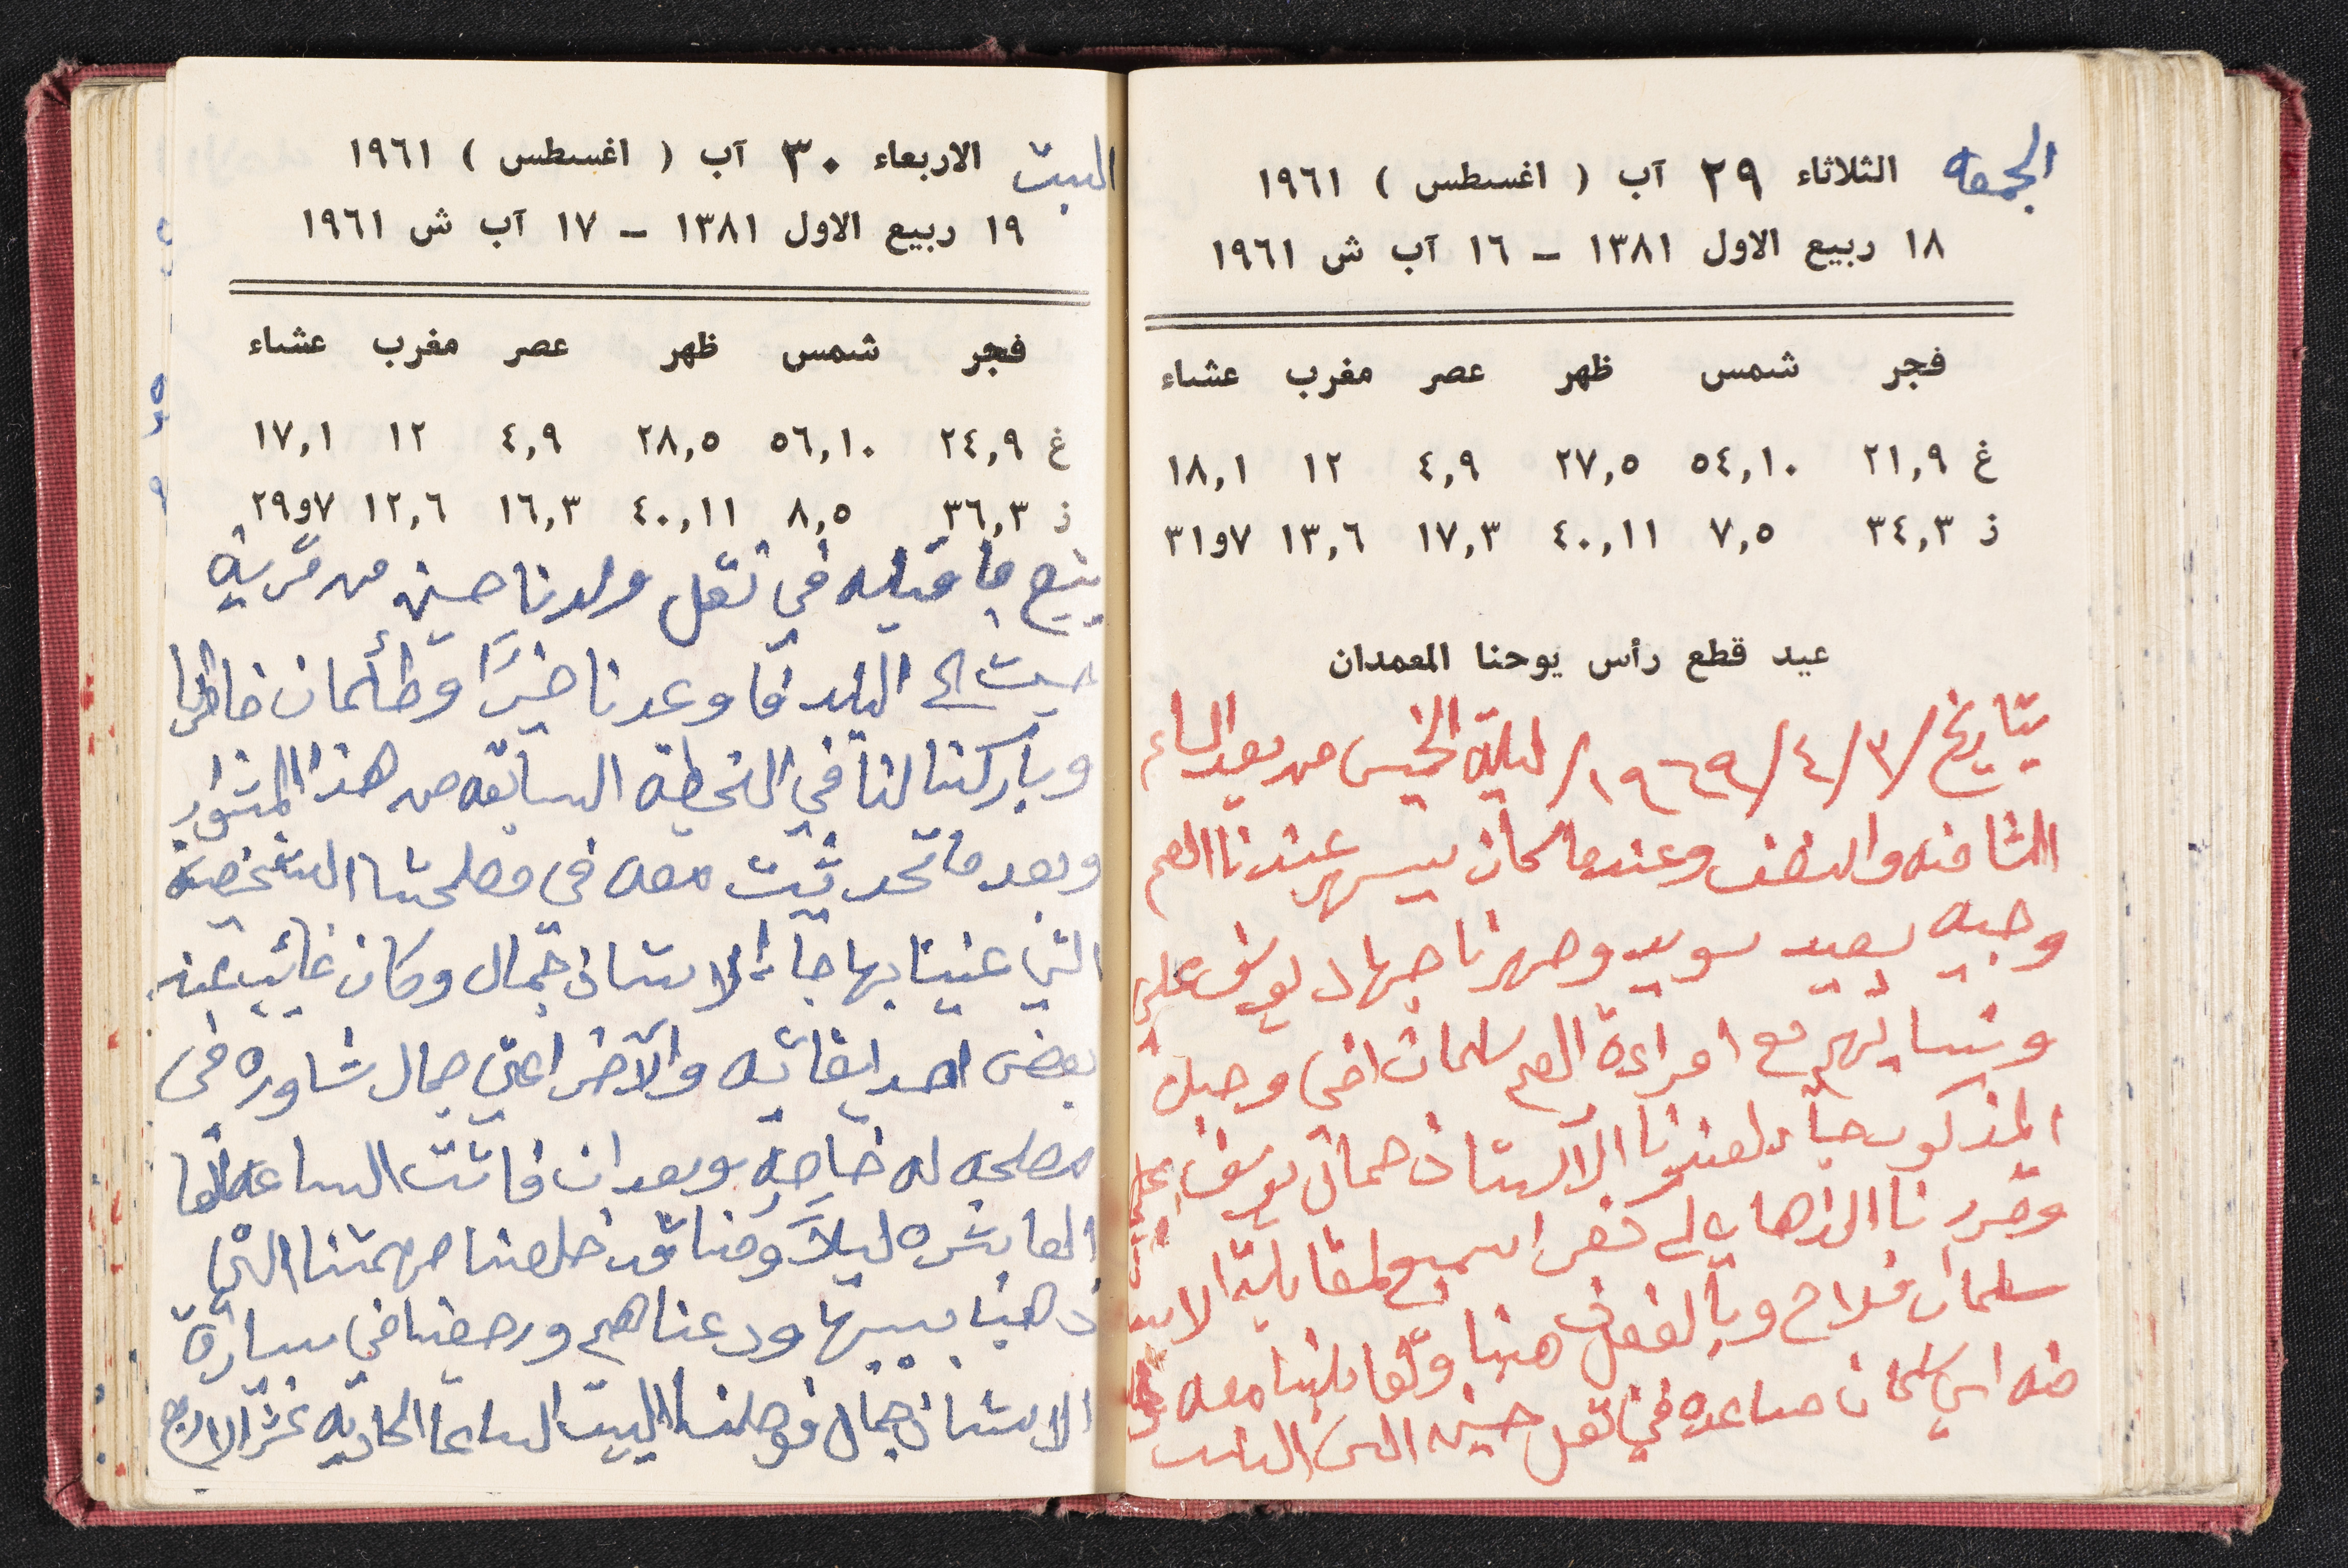 الجمعه الثلاثاء ٢٩ آب ( اغسطس ) ١٩٦١
١٨ ربيع الاول ١٣٨١ – ١٦ آب ش ١٩٦١
فجر شمس ظهر عصر مغرب عشاء
غ ٢١,٩ ٥٤,١٠ ٢٧,٥ ٤,٩ ١٢ ١٨,١
ز ٣٤,٣ ٧,٥ ٤٠,١١ ١٧,٣ ١٣,٦ ٧و٣١
عيد قطع رأس يوحنا المعمدان
بتاريخ /٣/٤/١٩٦٩/ ليلة الخميس من بعد المساء
الثامنه والنصف وعندما كان يسهر عندنا العم
وجيه سعيد سويد وصهرنا جهاد يوسف علي
ونسائهم مع امراءة العم سلمان اخي وجيه
المذكور جاء لعندنا الاستاذ جمال يوسف علي
وقررنا الذهاب الى كفر اسميع لمقابلة الاستاذ
سلمان فلاح وبالفعل ذهبنا وتقابلنا معه
منه اي سلمان مساعده في نقل حسين الى البلد
السبت الاربعاء ٣٠ آب ( اغسطس ) ١٩٦١
١٩ ربيع الاول ١٣٨١ – ١٧ آب ش ١٩٦١
فجر شمس ظهر عصر مغرب عشاء
غ ٢٤,٩ ٥٦,١٠ ٢٨,٥ ٤,٩ ١٢ ١٧,١
ز ٣٦,٣ ٨,٥ ٤٠,١١ ١٦,٣ ١٢,٦ ٧و٢٩
يتبع ما قبله في نقل ولدنا حسين من قرية
جت الى البلد فاوعدنا خيرًا وطأمان خاطرنا
وباركنا لنا في الخطه السابقه من هذا المشوار
وبعد ما تحدثت معه في مصلحتنا الشخصية
التي عنينا بها جاء الاستاذ جمال وكان غائب عند
بعض اصدايقائه والآخر اعني جمال شاوره في
مصلحه له خاصه وبعد ان فاتت الساعه
العاشره ليلاً وقد خلصنا مهمتنا التي
ذهبنا بسببها ودعناهم ورجعنا في سيارة
الاستاذ جمال فوصلنا البيت الساعا الحاديه عشر الا ربع